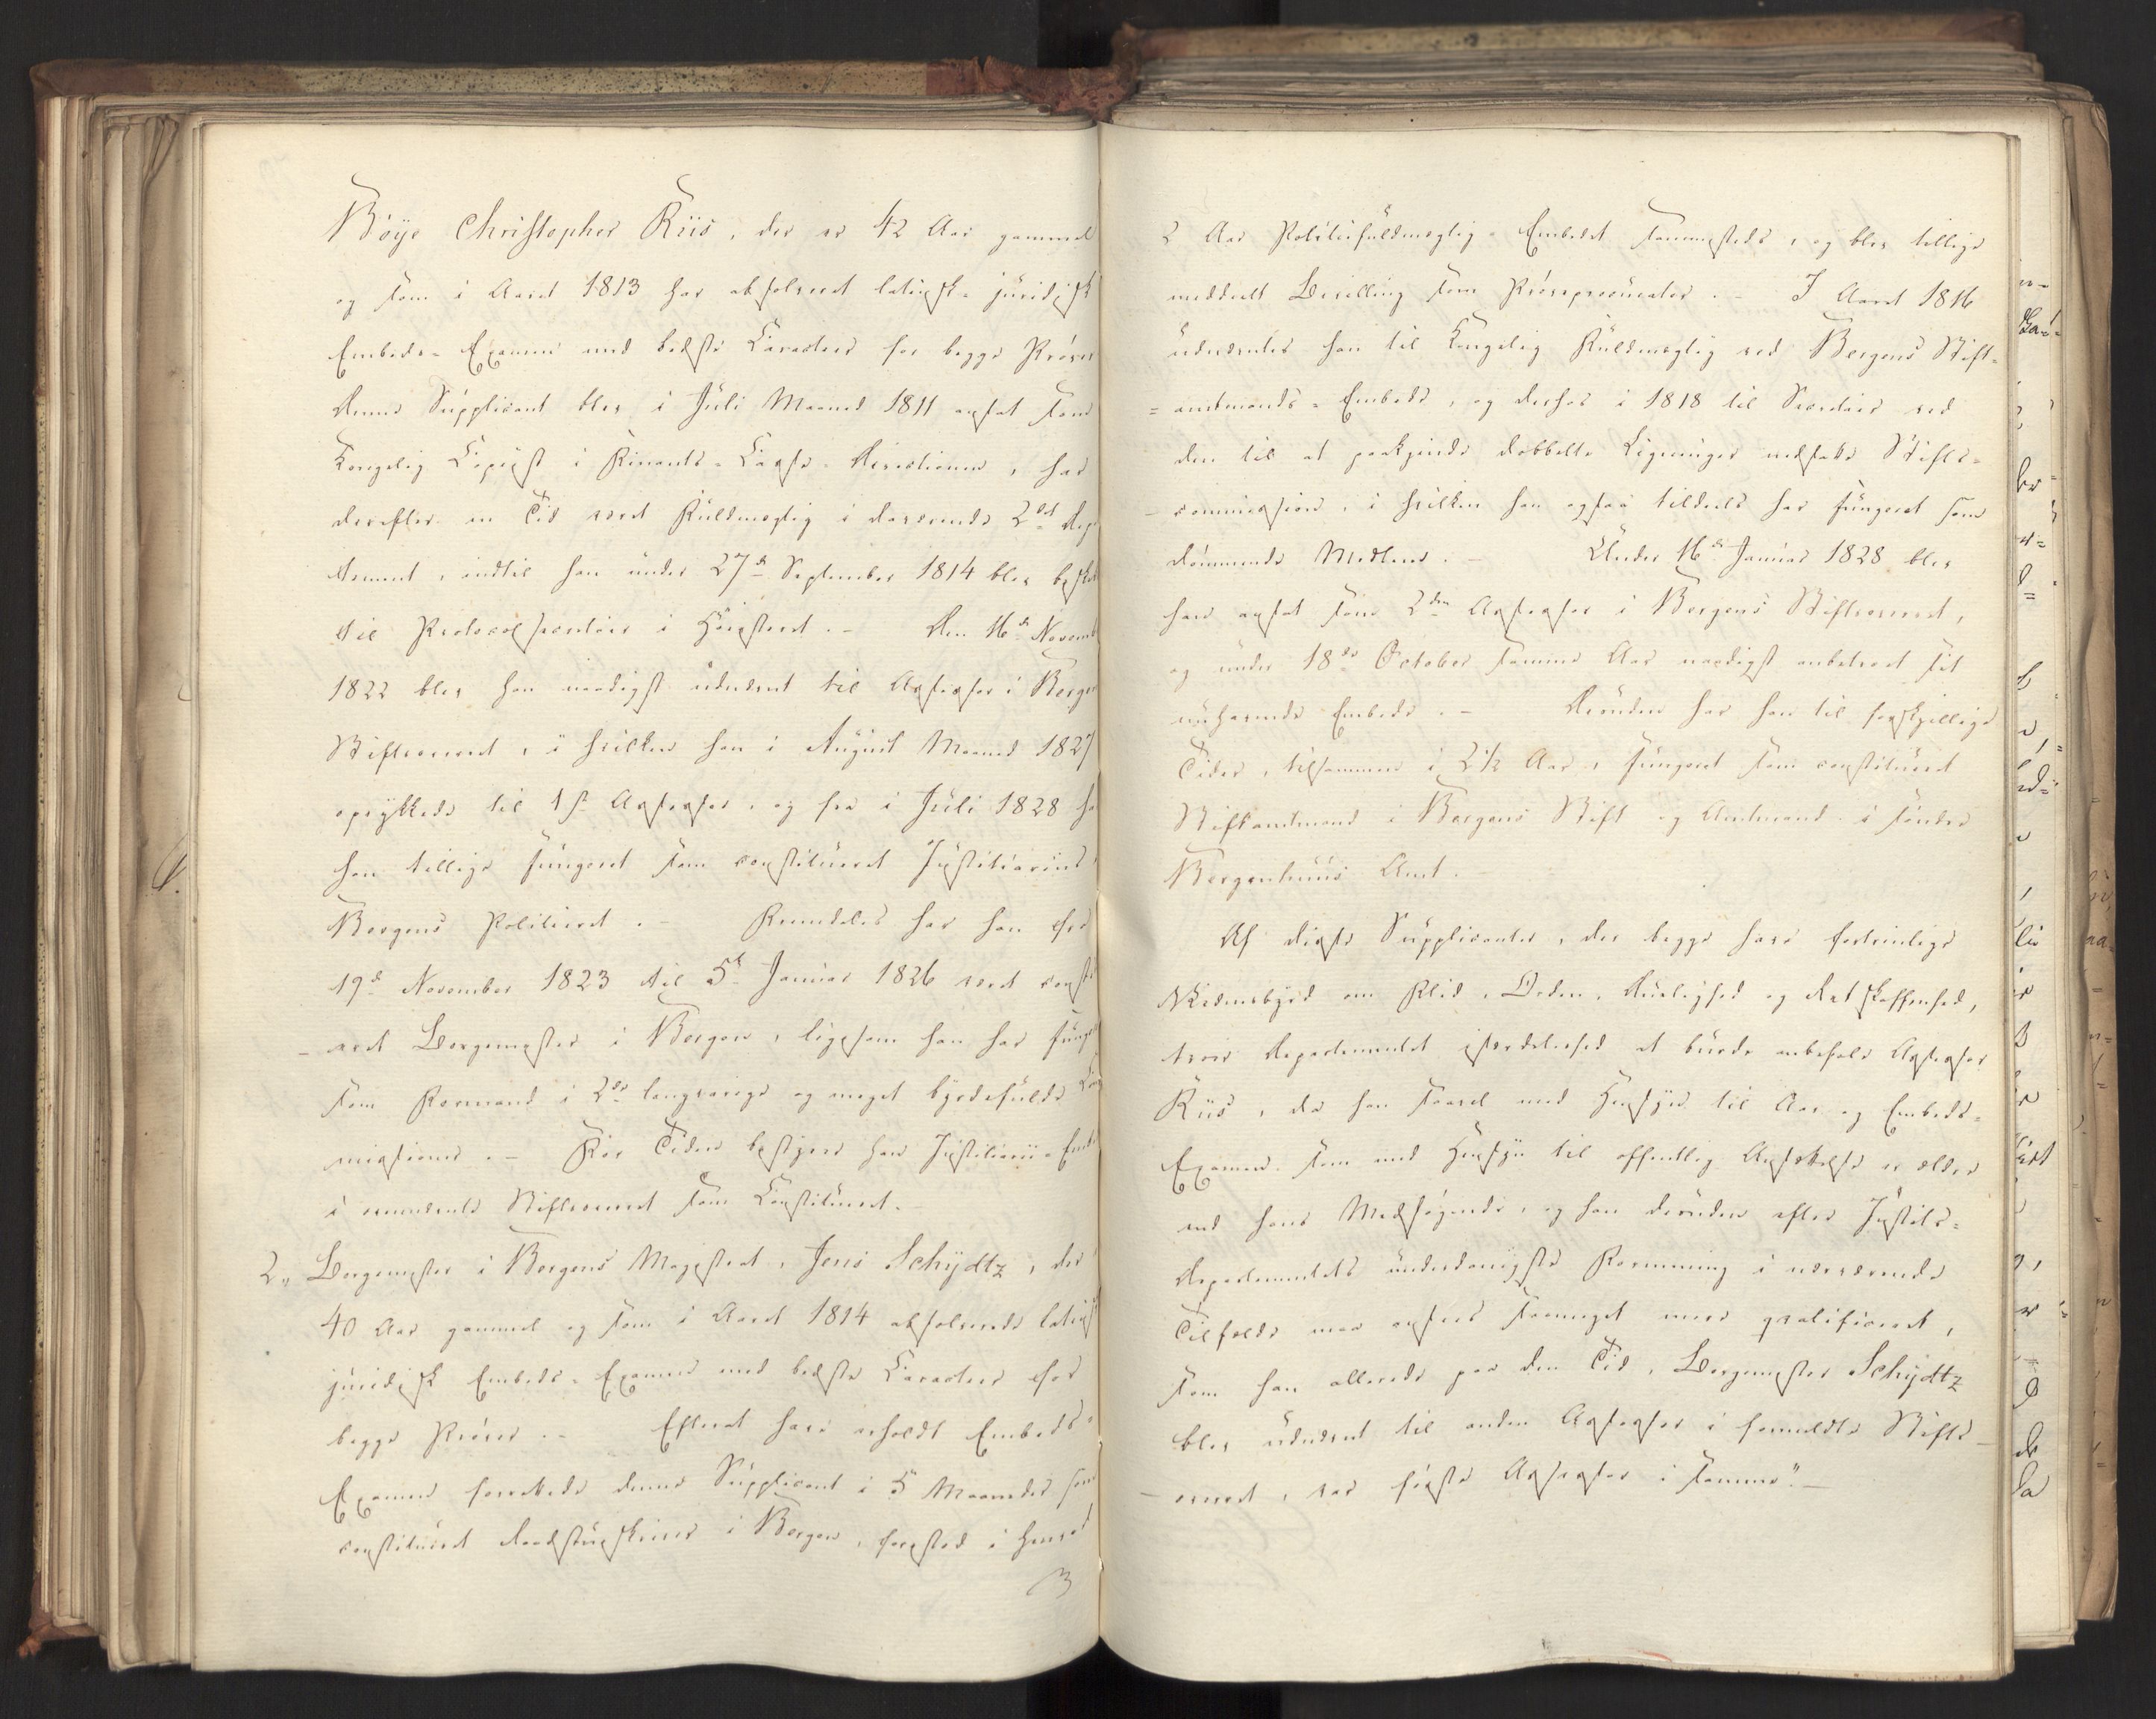 Böye Christopher Riis, der er 42 Aar gammel
og som i Aaret 1813 har absolveret latinsk-juridisk
Embeds-Examen med bedste Caracteer for begge Prøver
Denne Supplicant blev i Juli Maaned 1811 ansat som
Kongelig Copiist i Finants-Casse-Directionen, har
derefter en Tid været Fuldmægtig i daværende 2det Dep
tement, indtil han under 27de September 1814 blev beskik
til Protocolsecretair i Høiesteret. - Den 16de Novemb
1822 blev han naadigst udnævnt til Assessor i Bergen
Stiftsoverret, i hvilken han i August Maaned 1827
oprykkede til 1ste Assessor, og fra i Juli 1828 ha
han tillige fungeret som constitueret Justitiarius
Bergens Politieret. - Fremdeles har han fra
19de November 1823 til 5te Januar 1826 været const
-eret Borgemester i Bergen, ligesom han har funge
som Formand i 2de langvarige og meget byrdefulde Com
missioner. - For Tiden bestyrer han Justitiarii-Embe
i ovennævnte Stiftsoverret som Constitueret.
2, Borgemester i Bergens Magistrat, Jens Schydtz, der
40 Aar gammel og som i Aaret 1814 absolverede latinsk
juridisk Embeds-Examen med bedste Caracteer for
begge Prøver. - Efterat have erholdt Embeds-
Examen forrettede denne Supplicant i 5 Maaneder som
constitueret Raadstueskriver i Bergen, forestod i henved
2 Aar Politiefuldmægtig-Embedet sammesteds, og blev tillige
meddeelt Bevilling som Prøveprocurator. - I Aaret 1816
udnævntes han til Kongelig Fuldmægtig ved Bergens Stift-
=amtmands-Embede, og derhos i 1818 til Secretair ved
den til at paakjende dobbelte Ligninger nedsatte Stifts-
-commission, i hvilken han ogsaa tildeels har fungeret som
dømmende Medlem. - Under 16de Januar 1828 blev
han ansat som 2den Assessor i Bergens Stiftsoverret,
og under 18de October samme Aar naadigst anbetroet sit
nuhavende Embede. - Desuden har han til forskjellige
Tider, tilsammen i 2½ Aar, fungeret som constitueret
Stiftamtmand i Bergens Stift og Amtmand i søndre
Bergenhuus Amt.
Af disse Supplicanter, der begge have fortrinlige
Vidnesbyrd om Flid, Orden, Duelighed og Retskaffenhed,
troer Departementet isærdeleshed at burde anbefale Assessor
Riis, da han saavel med Hensyn til Aar og Embeds-
Examen som med Hensyn til offentlig Ansættelse er ældre
end hans Medsøgende, og han desuden efter Justits-
Departementets underdanigste Formening i nærværende
Tilfælde maa ansees saameget mere qvalificeret,
som han allerede paa den Tid, Borgemester Schydtz
blev udnævnt til anden Assessor i formeldte Stifts-
-overret, var første Assessor i samme". -